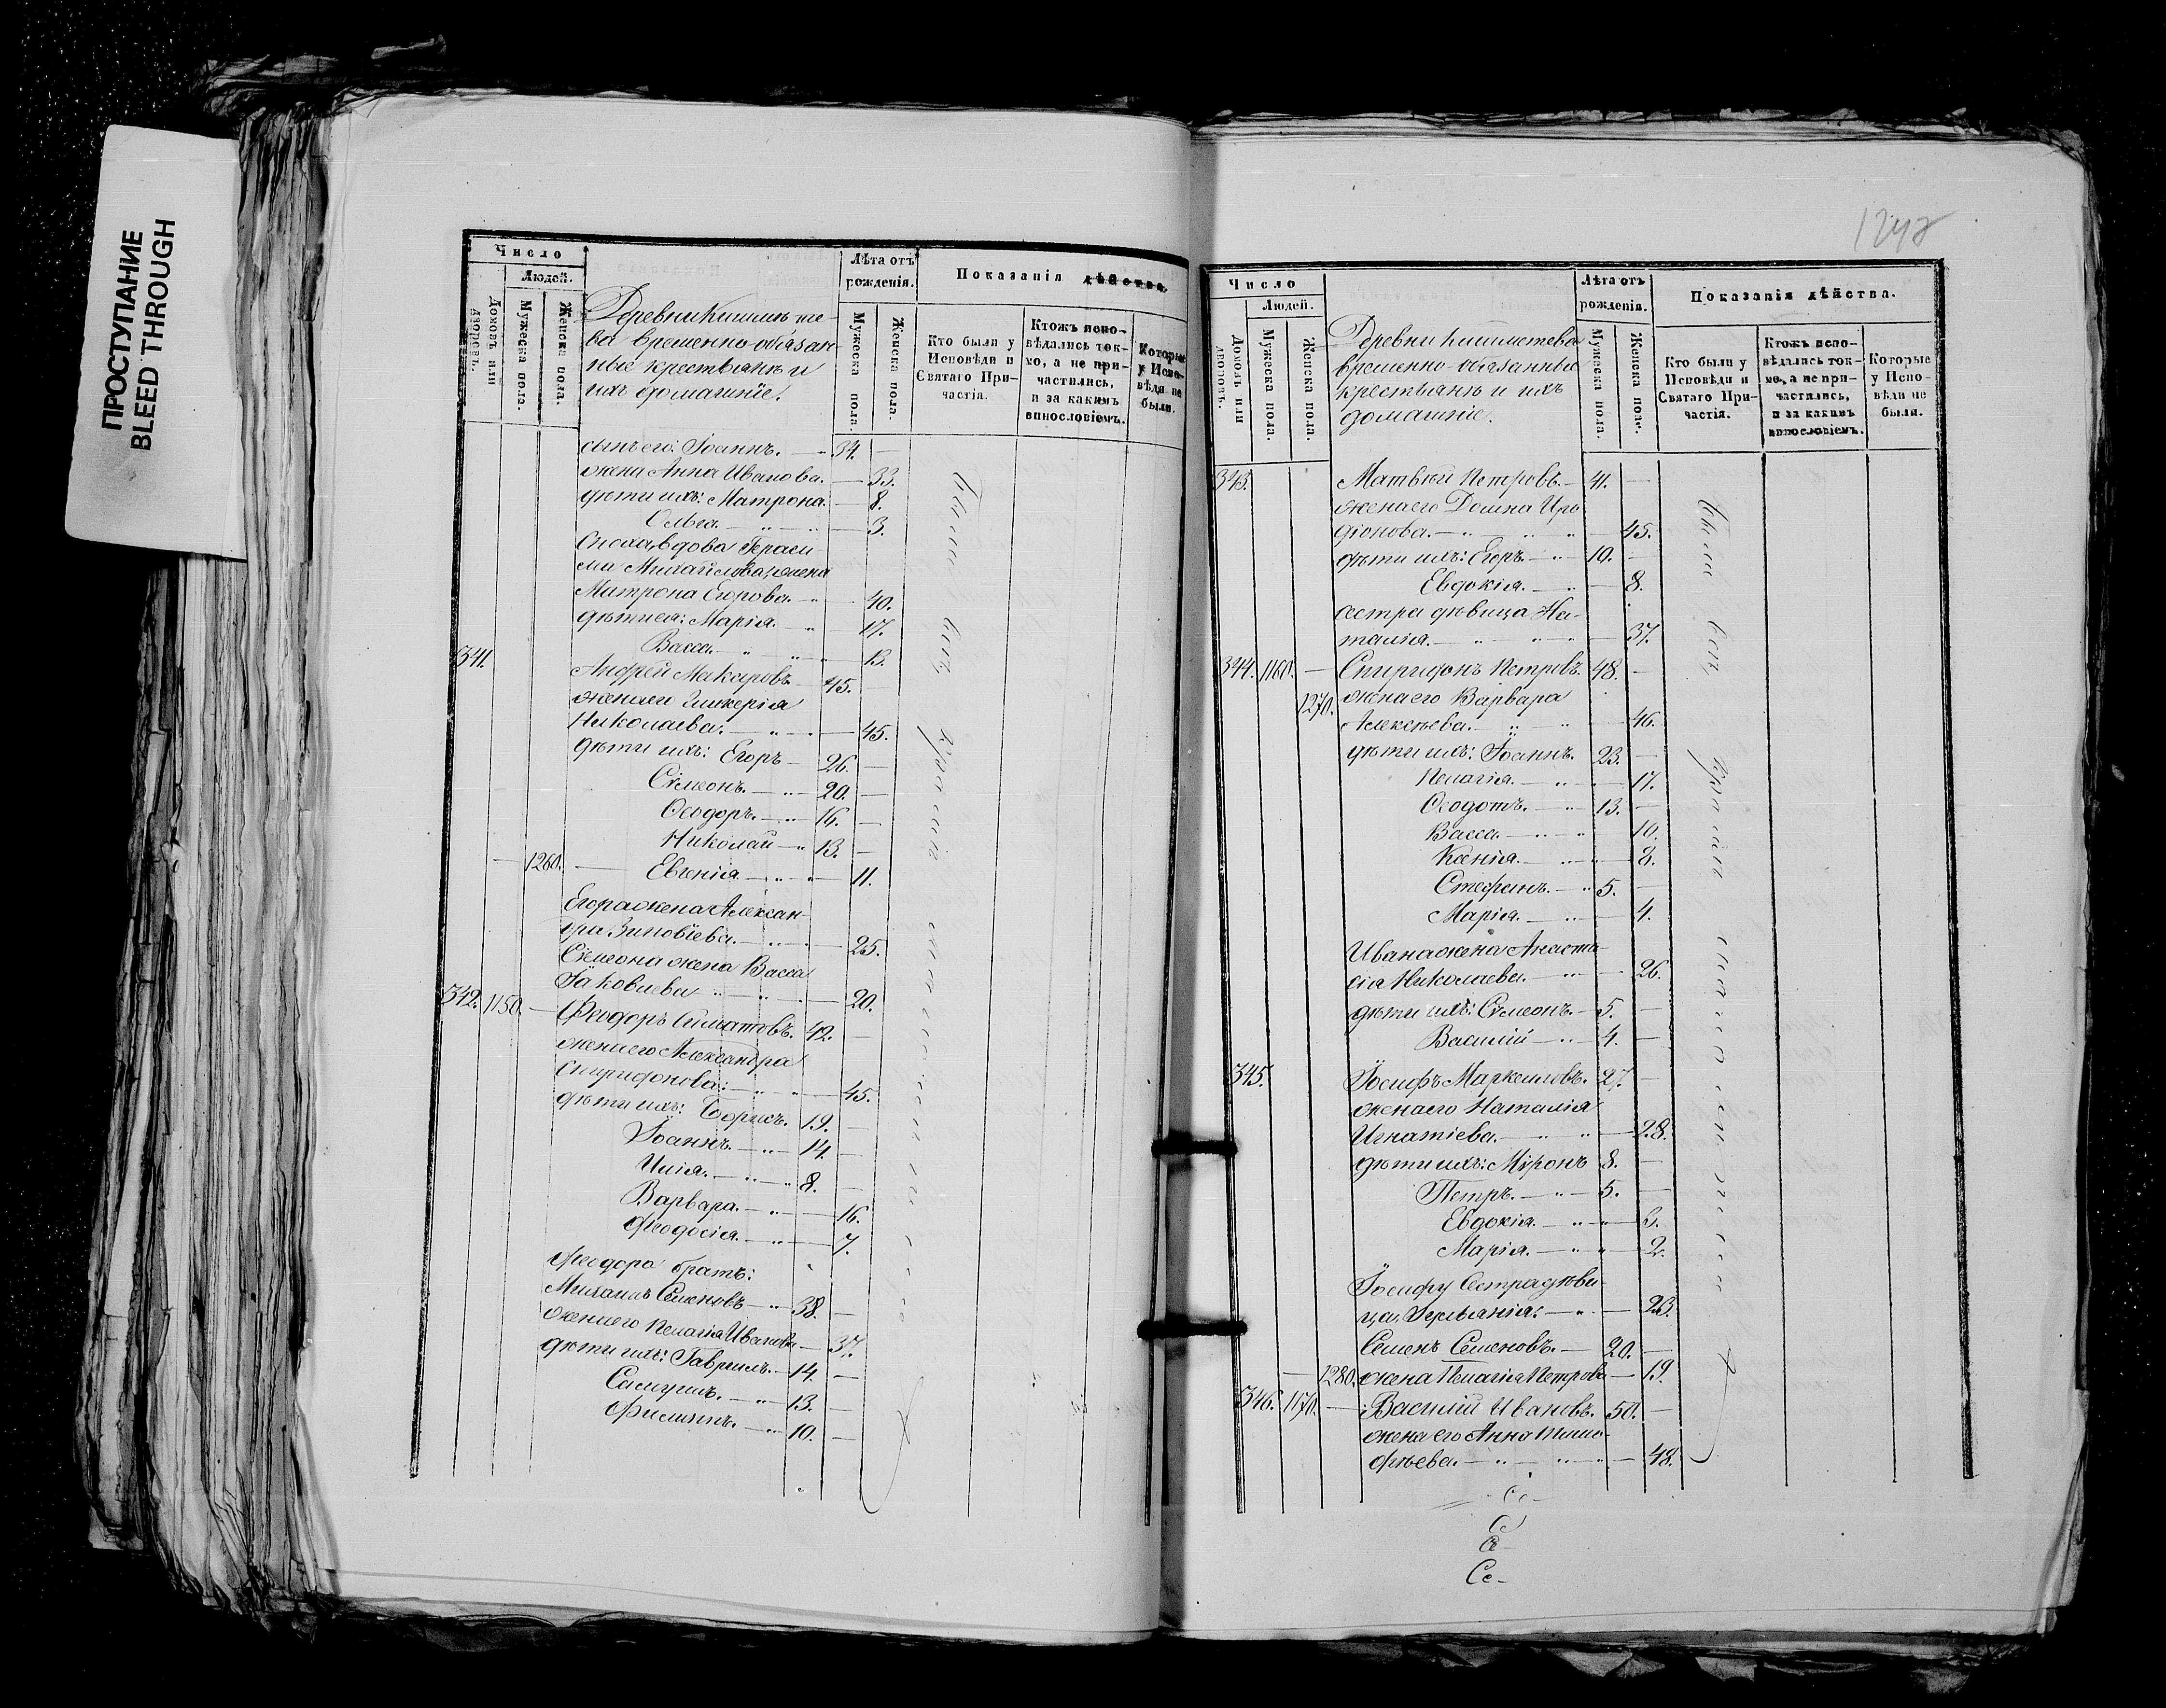 ПРОСТУПАНИЕ
BLEED THROUGH
Число
Людей.
Домовъ или дворовъ.
Мужеска пола.
Женска пола.
Деревни
ва временно-обязан-
ные крестьяне и
ихъ домашніе.
Лѣта отъ рожденія.
Мужеска пола.
Женска пола.
Показанія дѣйства.
Кто были у Исповѣди и Святаго При-частія.
Ктожъ испо-вѣдались ток-мо, а не при-частились, и за какимъ винословіемъ.
Которые у Испо-вѣди не были.
сынъ его: Іоаннъ. 34.
жена Анна Иванова. 33.
дѣти ихъ: Матрона. 8.
Ольга. 3.
Сноха, вдова Гераси
ма Михайлова, жена
Матрона Егорова. 40.
дѣти ея: Марія. 17.
Васса. 13.
341. Андрей Макаровъ 45.
жена его Гликерія
Николаева. 45.
дѣти ихъ: Егоръ 26.
Сѵмеонъ. 20.
Ѳеодоръ. 16.
Николай 13.
1260. Евгенія 11.
Егора жена Алексан-
дра Зиновіева. 25.
Сѵмеона жена Васса
Іаковлева 20.
342. 1150. Ѳеодоръ 42.
жена его Александра
Спиридонова. 45.
дѣти ихъ: Борисъ. 19.
Іоаннъ. 14.
Илія. 8.
Варвара. 16.
Ѳеодосія. 7.
Ѳеодора братъ:
Михаилъ Семеновъ 38.
жена его Пелагія Иванова 37.
дѣти ихъ: Гавріилъ. 14.
Самуилъ. 13.
Филиппъ. 10.
Были
1248
Число
Людей.
Домовъ или дворовъ.
Мужеска пола.
Женска пола.
Деревни
временно-обязанные
крестьяне и ихъ
домашніе.
Лѣта отъ рожденія.
Мужеска пола.
Женска поле.
Показанія дѣйства.
Кто были у Исповѣди и Святаго При-частія.
Ктожъ испо-вѣдались ток-мо, а не при-частились, и за какимъ винословіемъ.
Которые у Испо-вѣди не были.
343. Матвѣй Петровъ. 41.
жена его Домна Иро
діонова. 45.
дѣти ихъ: Егоръ. 10.
Евдокія. 8.
сестра дѣвица На-
талія. 37.
344. 1160. Спиридонъ Петровъ. 48.
1270. жена его Варвара
Алексѣева. 46.
дѣти ихъ: Іоаннъ. 23.
Пелагія. 17.
Ѳеодотъ. 13.
Васса. 10.
Ксенія. 8.
Стефанъ. 5.
Марія. 4.
Ивана жена Анаста-
сія Николаева. 26.
дѣти ихъ: Сѵмеонъ. 5.
Василій 4.
345. Іосифъ Маркелловъ. 27.
жена его Наталія
Игнатіева. 28.
дѣти ихъ: Мѵронъ 8.
Петръ. 5.
Евдокія.
Марія. 2.
Іосифу сестра дѣви-
ца 23.
Семенъ Семеновъ. 20.
1280. жена Пелагія Петрова 19.
346. 1170. Василій Ивановъ. 50.
жена его Анна Тимо-
фѣева. 48.
Были
Се-
С
Се
Се-